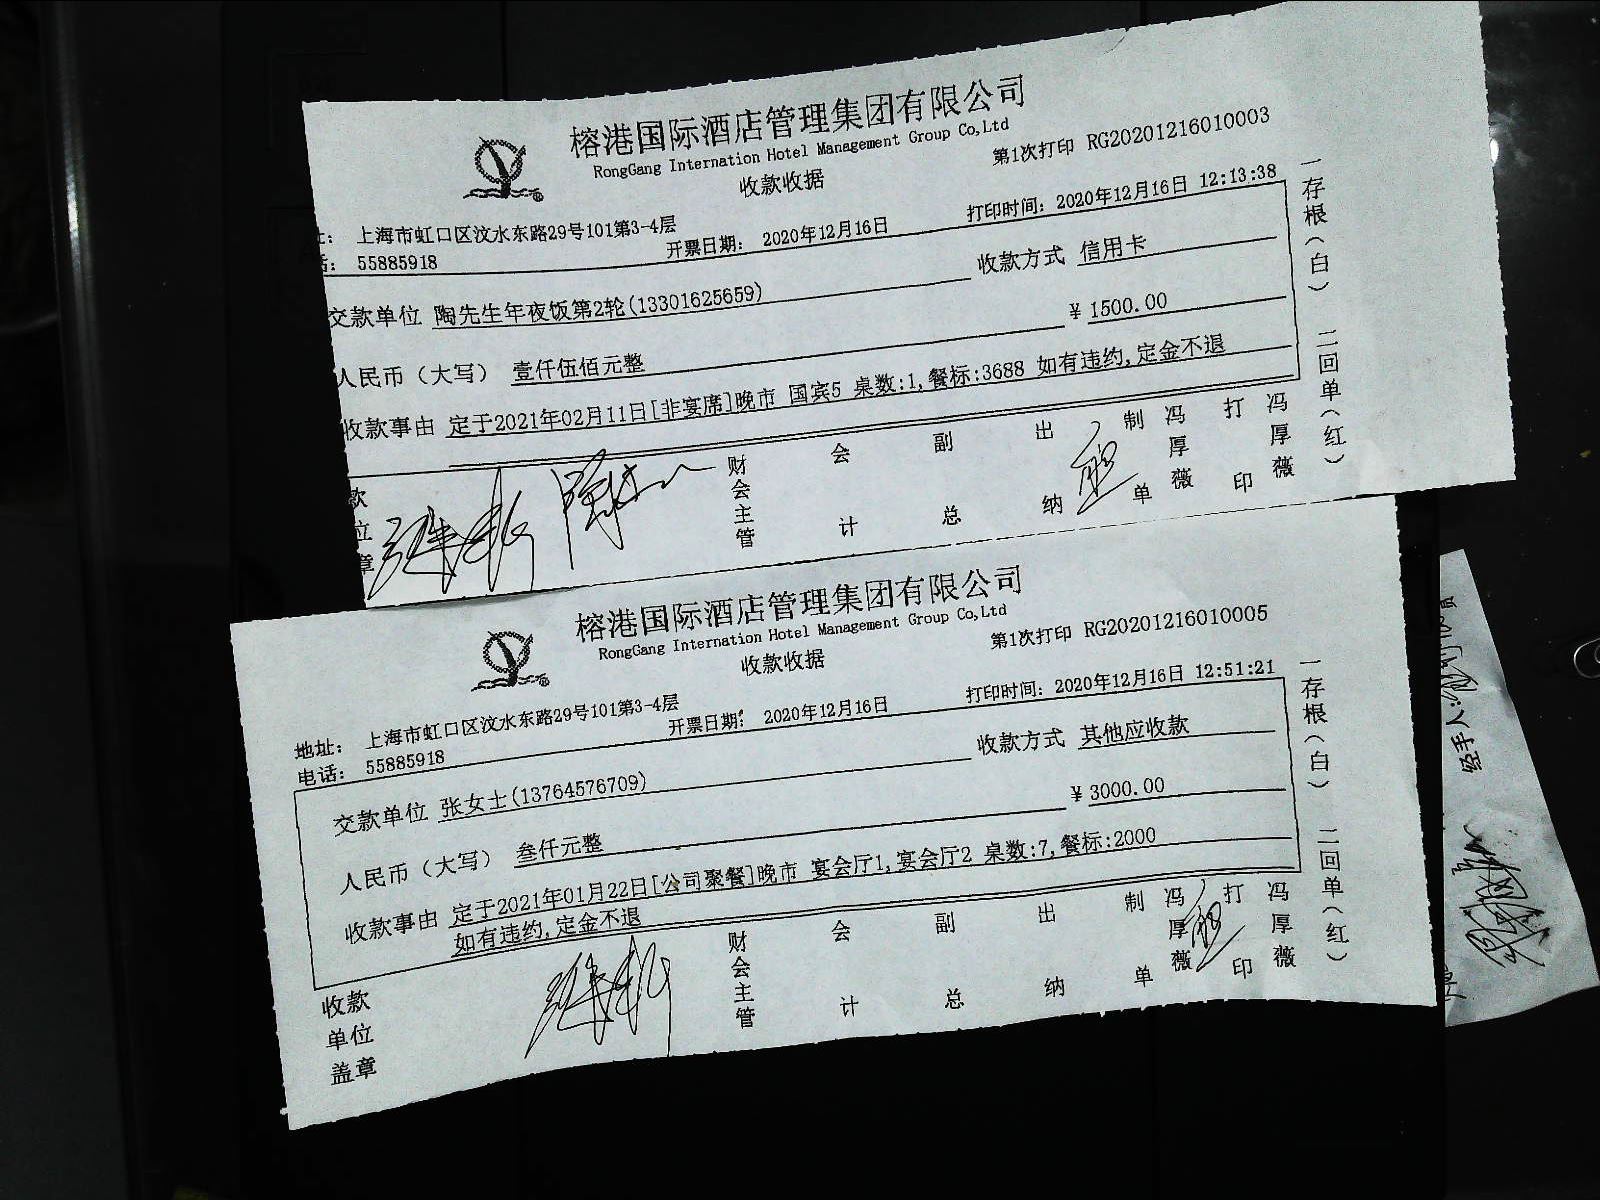 榕港国际酒店管理集团有限公司
RongGang Internation Hotel Management Group Co,Ltd
收款收据
第1次打印 RG20201216010003
上海市虹口区汶水东路29号101第3-4层
55885918
开票日期: 2020年12月16日
打印时间: 2020年12月16日 12:13:38
交款单位 陶先生年夜饭第2轮(13301625659)
收款方式 信用卡
人民币（大写） 壹仟伍佰元整
¥ 1500.00
收款事由 定于2021年02月11日[非宴席]晚市 国宾5 桌数:1,餐标:3688 如有违约,定金不退
款位章
财会主管
会计
副总
出纳
制单 冯厚薇
打印 冯厚薇
一存根(白) 二回单(红)
榕港国际酒店管理集团有限公司
RongGang Internation Hotel Management Group Co,Ltd
收款收据
第1次打印 RG20201216010005
地址: 上海市虹口区汶水东路29号101第3-4层
电话: 55885918
开票日期: 2020年12月16日
打印时间: 2020年12月16日 12:51:21
交款单位 张女士(13764576709)
收款方式 其他应收款
人民币（大写） 叁仟元整
¥ 3000.00
收款事由 定于2021年01月22日[公司聚餐]晚市 宴会厅1,宴会厅2 桌数:7,餐标:2000
如有违约,定金不退
收款
单位
盖章
财会主管
会计
副总
出纳
制单 冯厚薇
打印 冯厚薇
一存根(白) 二回单(红)
经手人: